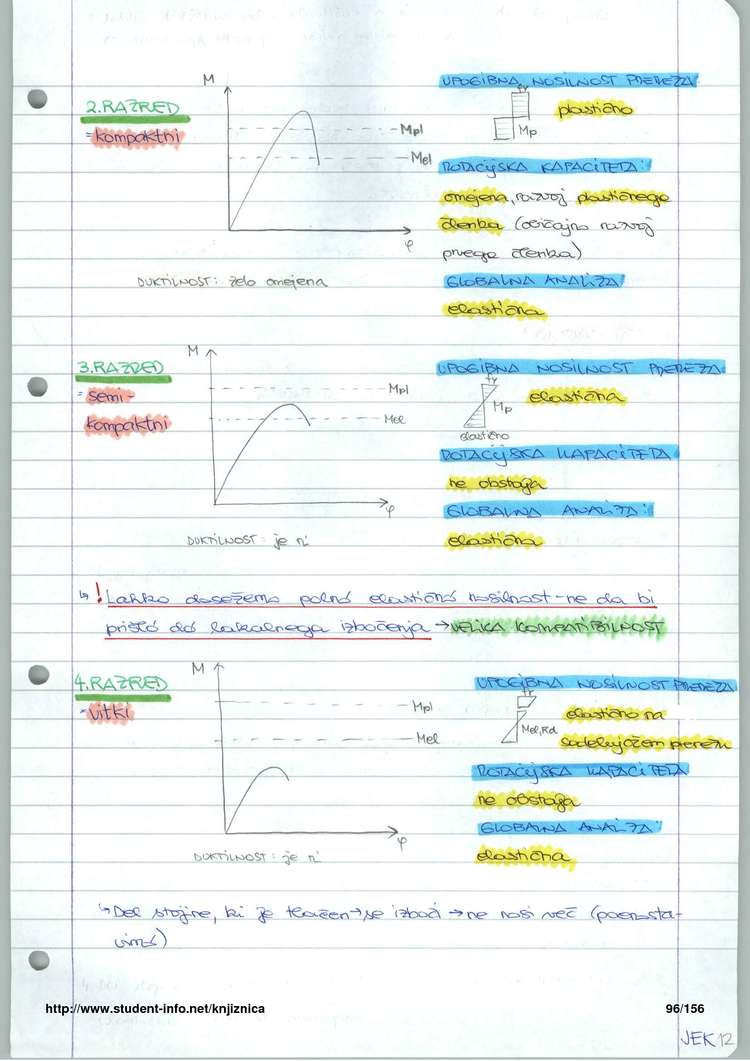 M
UPOGIBNA NOSILNOST PREREZA
2.RAZRED
plastično
= kompaktni
Mpl
Mp
Mel
ROTACIJSKA KAPACITETA:
omejena, razvoj plastičnega
členka (običajno razvoj
φ
prvega členka)
DUKTILNOST: zelo omejena
GLOBALNA ANALIZA
elastična
M
3.RAZRED
UPOGIBNA NOSILNOST PREREZA
= semi-
kompaktni
Mpl
Mp
elastična
Mel
elastično
ROTACIJSKA KAPACITETA
ne obstaja
φ
GLOBALNA ANALIZA:
DUKTILNOST: je ni
elastična
↳ ! Lahko dosežemo polno elastično nosilnost - ne da bi
prišlo do lokalnega izbočenja → VELIKA KOMPATIBILNOST
M
4.RAZRED
UPOGIBNA NOSILNOST PREREZA
= vitki
Mpl
elastično na
Mel
Mel,Rd
sodelujočem prerezu
ROTACIJSKA KAPACITETA
ne obstaja
φ
GLOBALNA ANALIZA:
DUKTILNOST: je ni
elastična
↳ Del stojine, ki je tlačen → se izboči → ne nosi več (poenosta-
vimo)
http://www.student-info.net/knjiznica
96/156
JEK 12